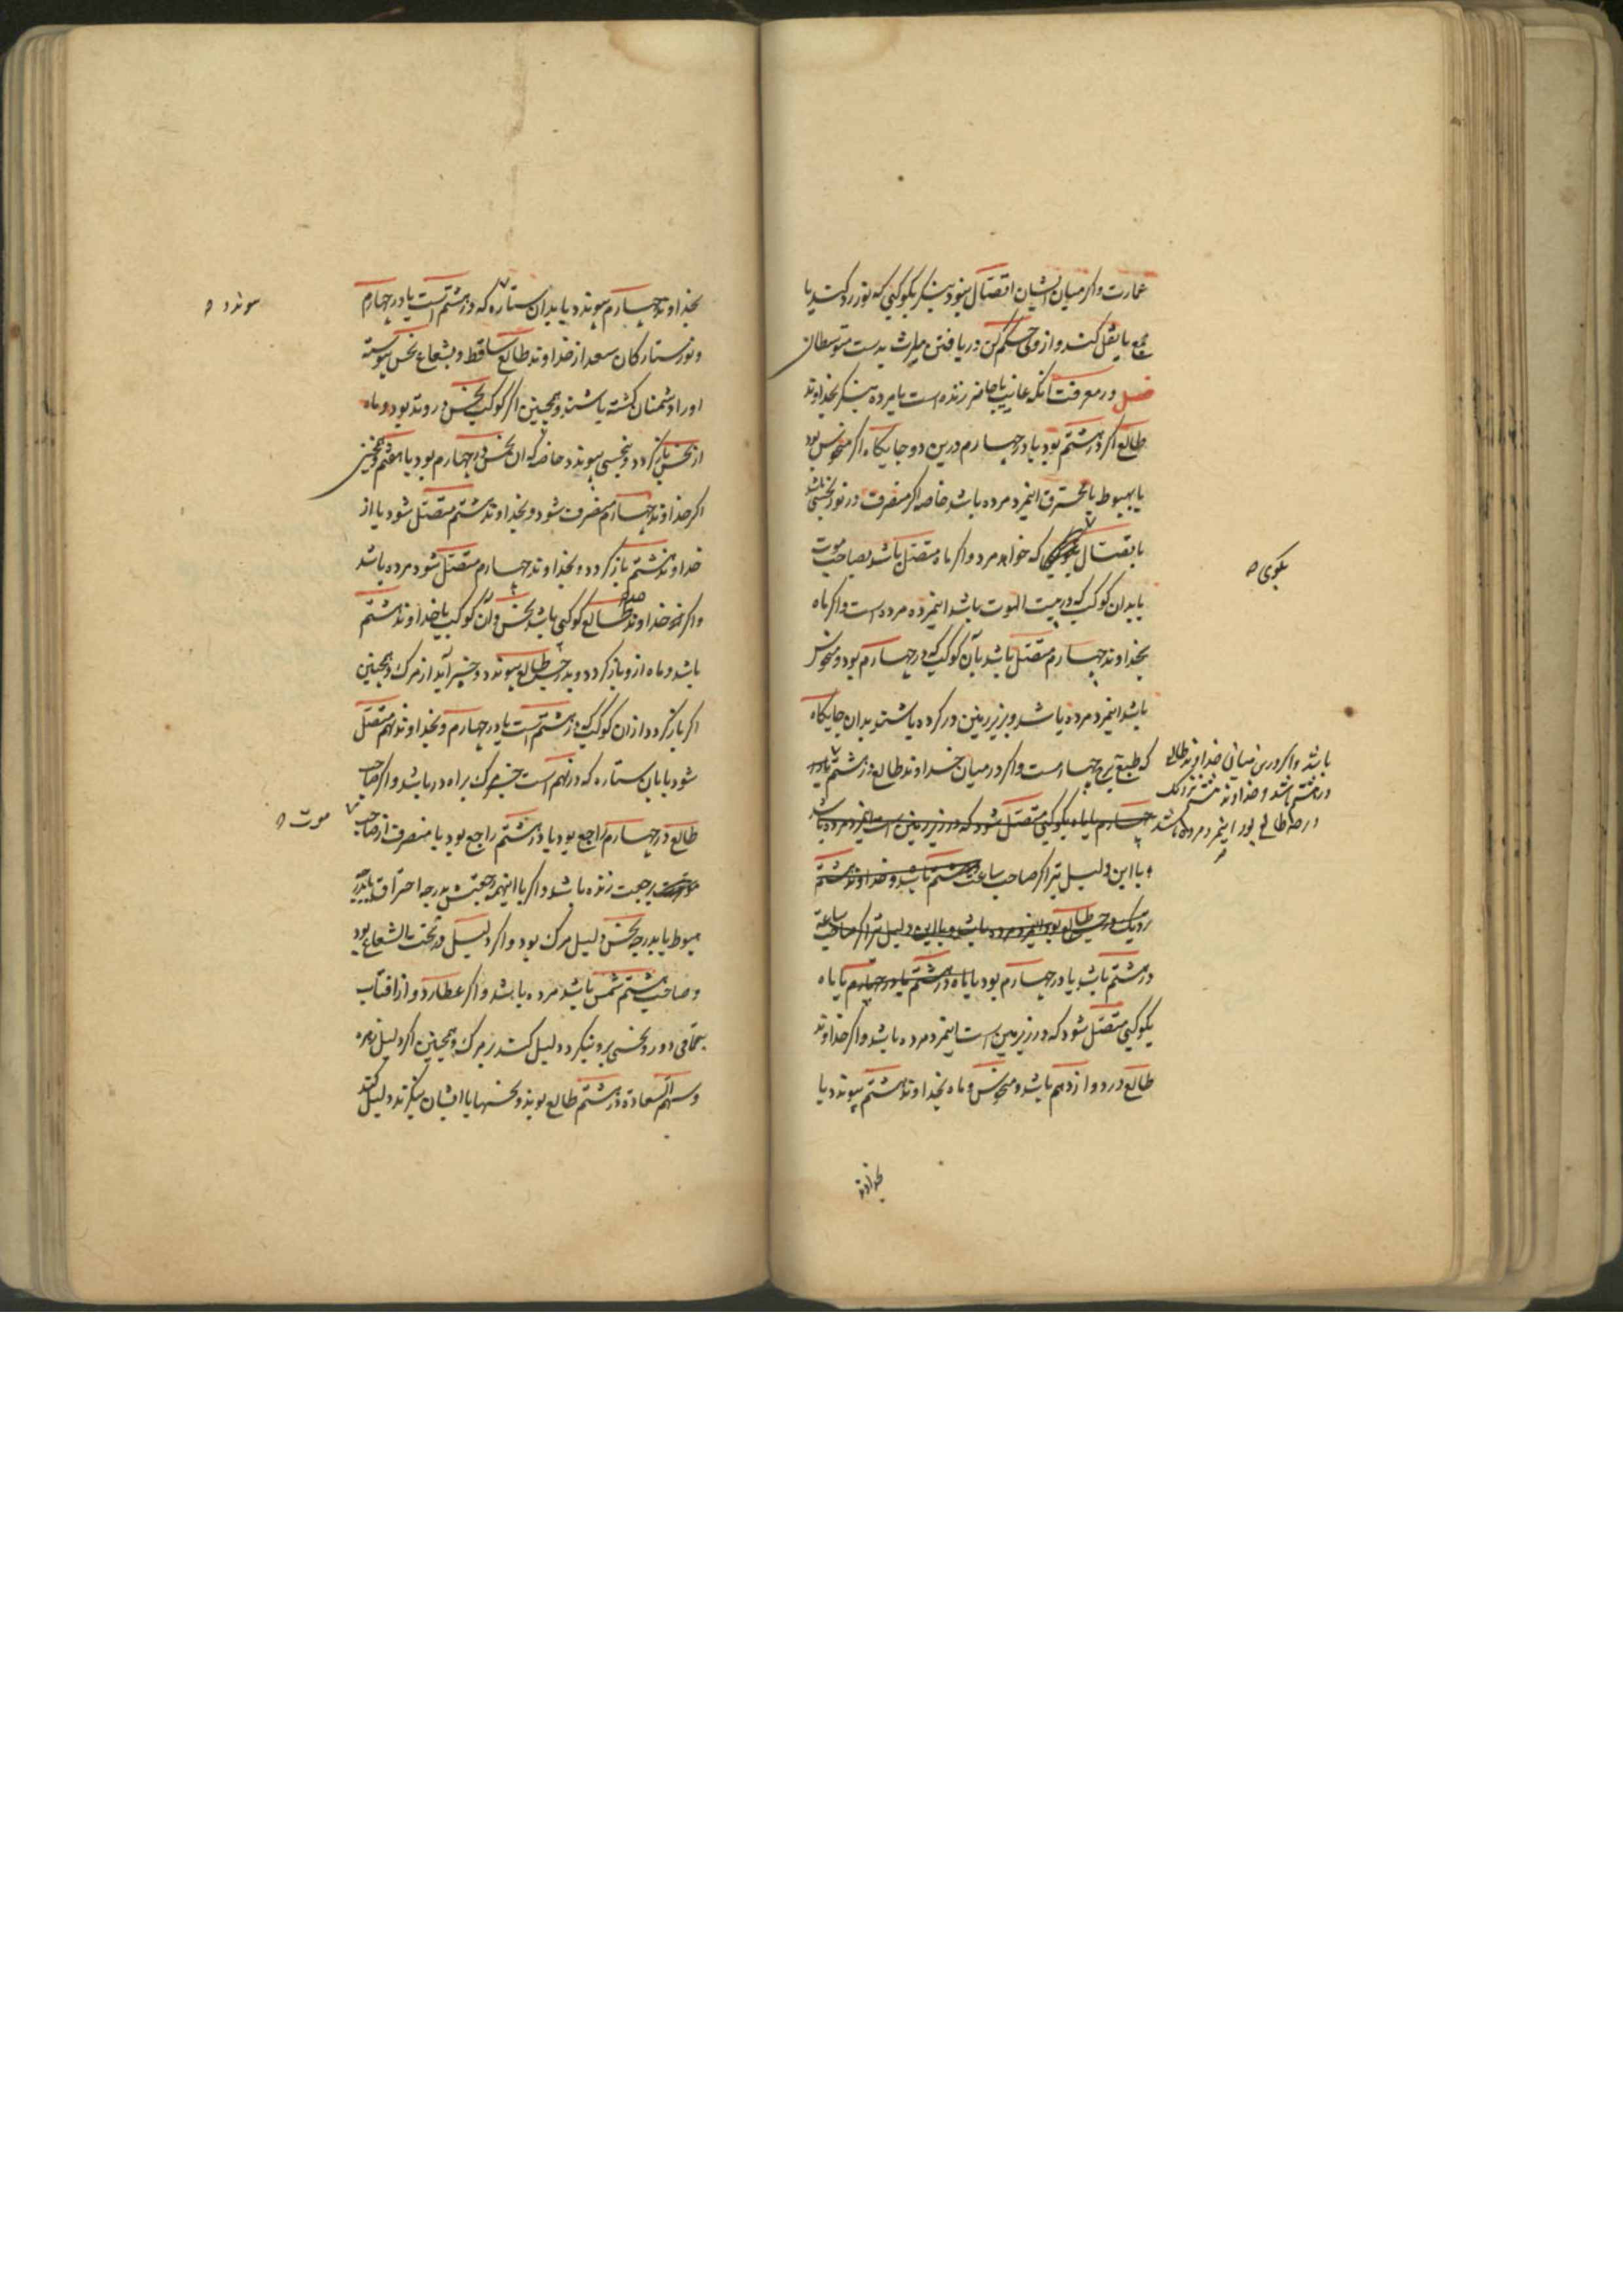 عمارت واکر میان ایشان اتصال نبود بنکر بکوکبی که نور رد کند یا
جمع یا نقل کند و از وی حکم کن در یافتن میراث بدست متوسطان
فصل در معرفت آنکه غایب یا حاضر زنده است یا مرده بنکر بخداوند
طالع اکر در هشتم بود یا در چهارم درین دو جایکاه اکر منحوس بود
یا بهبوط یا محترق اینمرد مرده باشد خاصه اکر منصرف در نور نحسی باشد
یا بقتال که خواهد مرد واکر ماه متصل باشد بصاحب موت
یا بدان کوکب که در بیت الموت باشد اینمرده مرده است واکر ماه
بخداوند چهارم متصل باشد یا بآن کوکب که در چهارم بود و منحوس
باشد اینمرد مرده باشد و بزیر زمین در کرده باشند بدان جایکاه
که طبع برج چهارمست واکر در میان خداوند طالع در هشتم یا در
چهارم یا ماه بکوکبی متصل شود که در زیر زمین است اینمرد مرده باشد
و با این دلیل نیز اکر صاحب ساعت هشتم باشد و خداوند هشتم
نزدیک درجه طالع بود اینمرد مرده باشد و با این دلیل نیز اکر صاحب ساعة
در هشتم باشد یا در چهارم بود یا ماه در هشتم یا در چهارم یا ماه
بکوکبی متصل شود که در زیر زمین است اینمرد مرده باشد واکر خداوند
طالع در دوازدهم باشد و منحوس و ماه بخداوند هشتم پیوندد یا
بخداوند
بکوی
باشد واکر خداوند طالع
در هشتم باشد و خداوند هشتم نزدیک
درجه طالع بود اینمرد مرده باشد
بخداوند چهارم پیوندد یا بدان ستاره که در هشتم است یا در چهارم
ونور ستارکان سعد از خداوند طالع ساقط و بشعاع نحس پیوسته
اورا دشمنان کشته باشند وهمچنین اکر کوکب نحس در وتد بود و ماه
از نحس بازکردد و بنحسی پیوندد خاصه که ان نحس در چهارم بود یا هفتم وهمچنین
اکر خداوند چهارم منصرف شود و بخداوند هشتم متصل شود یا از
خداوند هشتم بازکردد و بخداوند چهارم متصل شود مرده باشد
واکر خداوند طالع کوکبی باشد نحس و آن کوکب یا خداوند هشتم
باشد و ماه ازو بازکردد و بدرجه طالع پیوندد و خبر آید از مرک وهمچنین
اکر بازکردد از ان کوکب که در هشتم است یا در چهارم و بخداوند نهم متصل
شود یا بان ستاره که در نهم است خبر مرک براه در باشد واکر صاحب
طالع در چهارم راجع بود یا در هشتم راجع بود یا منصرف از صاحب
رجعت زنده باشد واکر با اینهمه رجعتش بدرجه احتراق یا بدرجه
هبوط یا بدرجه نحس دلیل مرک بود واکر دلیل در تحت الشعاع بود
وصاحب هشتم شمس باشد مرده باشد واکر عطارد و از افتاب
دور و نحسی برو بنکرد دلیل کند بر مرک وهمچنین اکر دلیل زهره
وسهم السعادة در هشتم طالع بوند و نحسها با ایشان بنکرند دلیل کند
موت